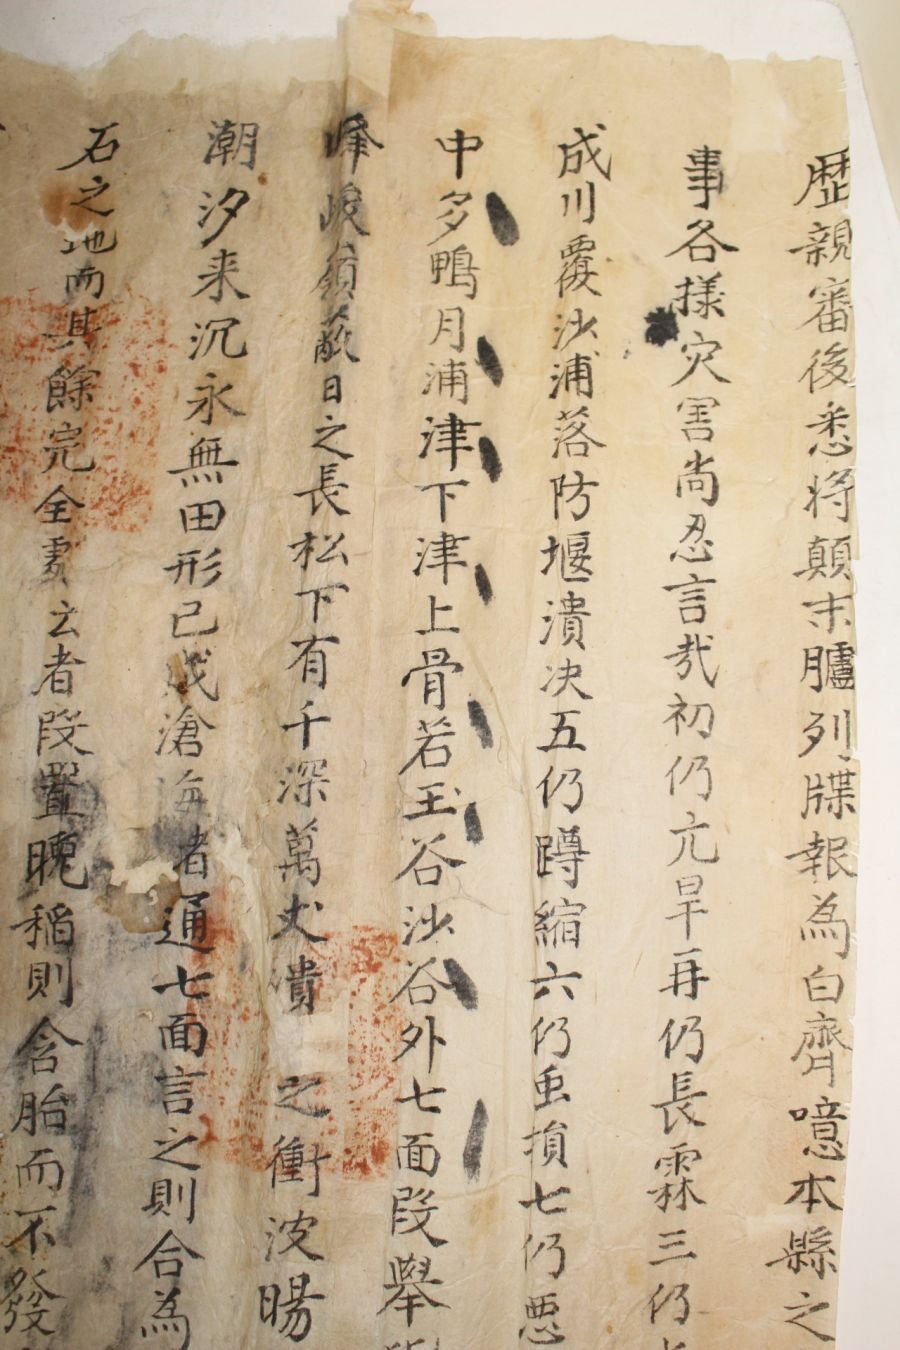 歷親審後悉將顛末臚列牒報為白齊噫本縣之
事各樣灾害尚忍言哉初仍亢旱再仍長霖三仍
成川覆沙浦落防堰潰决五仍蹲縮六仍虫損七仍恶
中多鴨月浦津下津上骨若王谷沙谷外七面段舉
峰峻嶺蔽日之長松下有千深萬丈潰之衝波暘
潮汐来沉永無田形已成滄海者通七面言之則合為
石之地而其餘完全處云者段置晩稲則含胎而不發